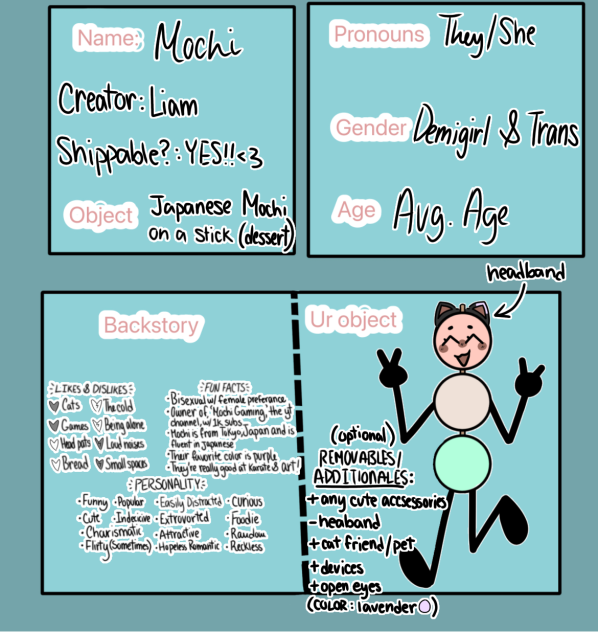 Name: Mochi
Creator: Liam
Shippable?: YES!!<3
Object Japanese Mochi
on a stick (dessert)
Pronouns They/She
Gender Demigirl & Trans
Age Avg. Age
Backstory
LIKES & DISLIKES:
♥ Cats ♡ The cold
♥ Games ♡ Being alone
♡ Head pats ♥ Loud noises
♡ Bread ♥ Small spaces
FUN FACTS:
• Bisexual w/ female preferance
• Owner of 'Mochi Gaming,' the yt
channel, w/ 1k subs
• Mochi is from Tokyo, Japan and is
fluent in Japanese
• Their favorite color is purple
• They're really good at karate & art!
PERSONALITY:
• Funny • Popular • Easily Distracted • Curious
• Cute • Indecisive • Extroverted • Foodie
• Charismatic • Attractive • Random
• Flirty (Sometimes) • Hopeless Romantic • Reckless
Ur object
headband
(optional)
REMOVABLES/
ADDITIONALES:
+ any cute accsessories
- heaband
+ cat friend/pet
+ devices
+ open eyes
(COLOR: lavender)